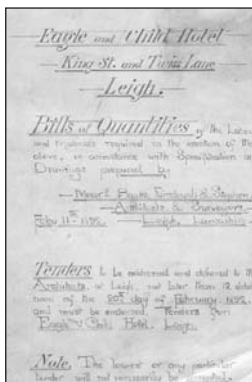 Eagle and Child Hotel
King St. and Twist Lane
Leigh.
Bills of Quantities of the Labour
and materials required in the erection of the
above, in accordance with Specification and
Drawings prepared by
Architects & Surveyors
Feby 11th 1892. Leigh, Lancashire
Tenders to be addressed and delivered to the
Architects, at Leigh, not later than 12
noon of the 20th day of February, 1892
and must be endorsed, Tenders for
Eagle & Child Hotel, Leigh.
Note. The lowest or any particular
tender will not necessarily be accepted.